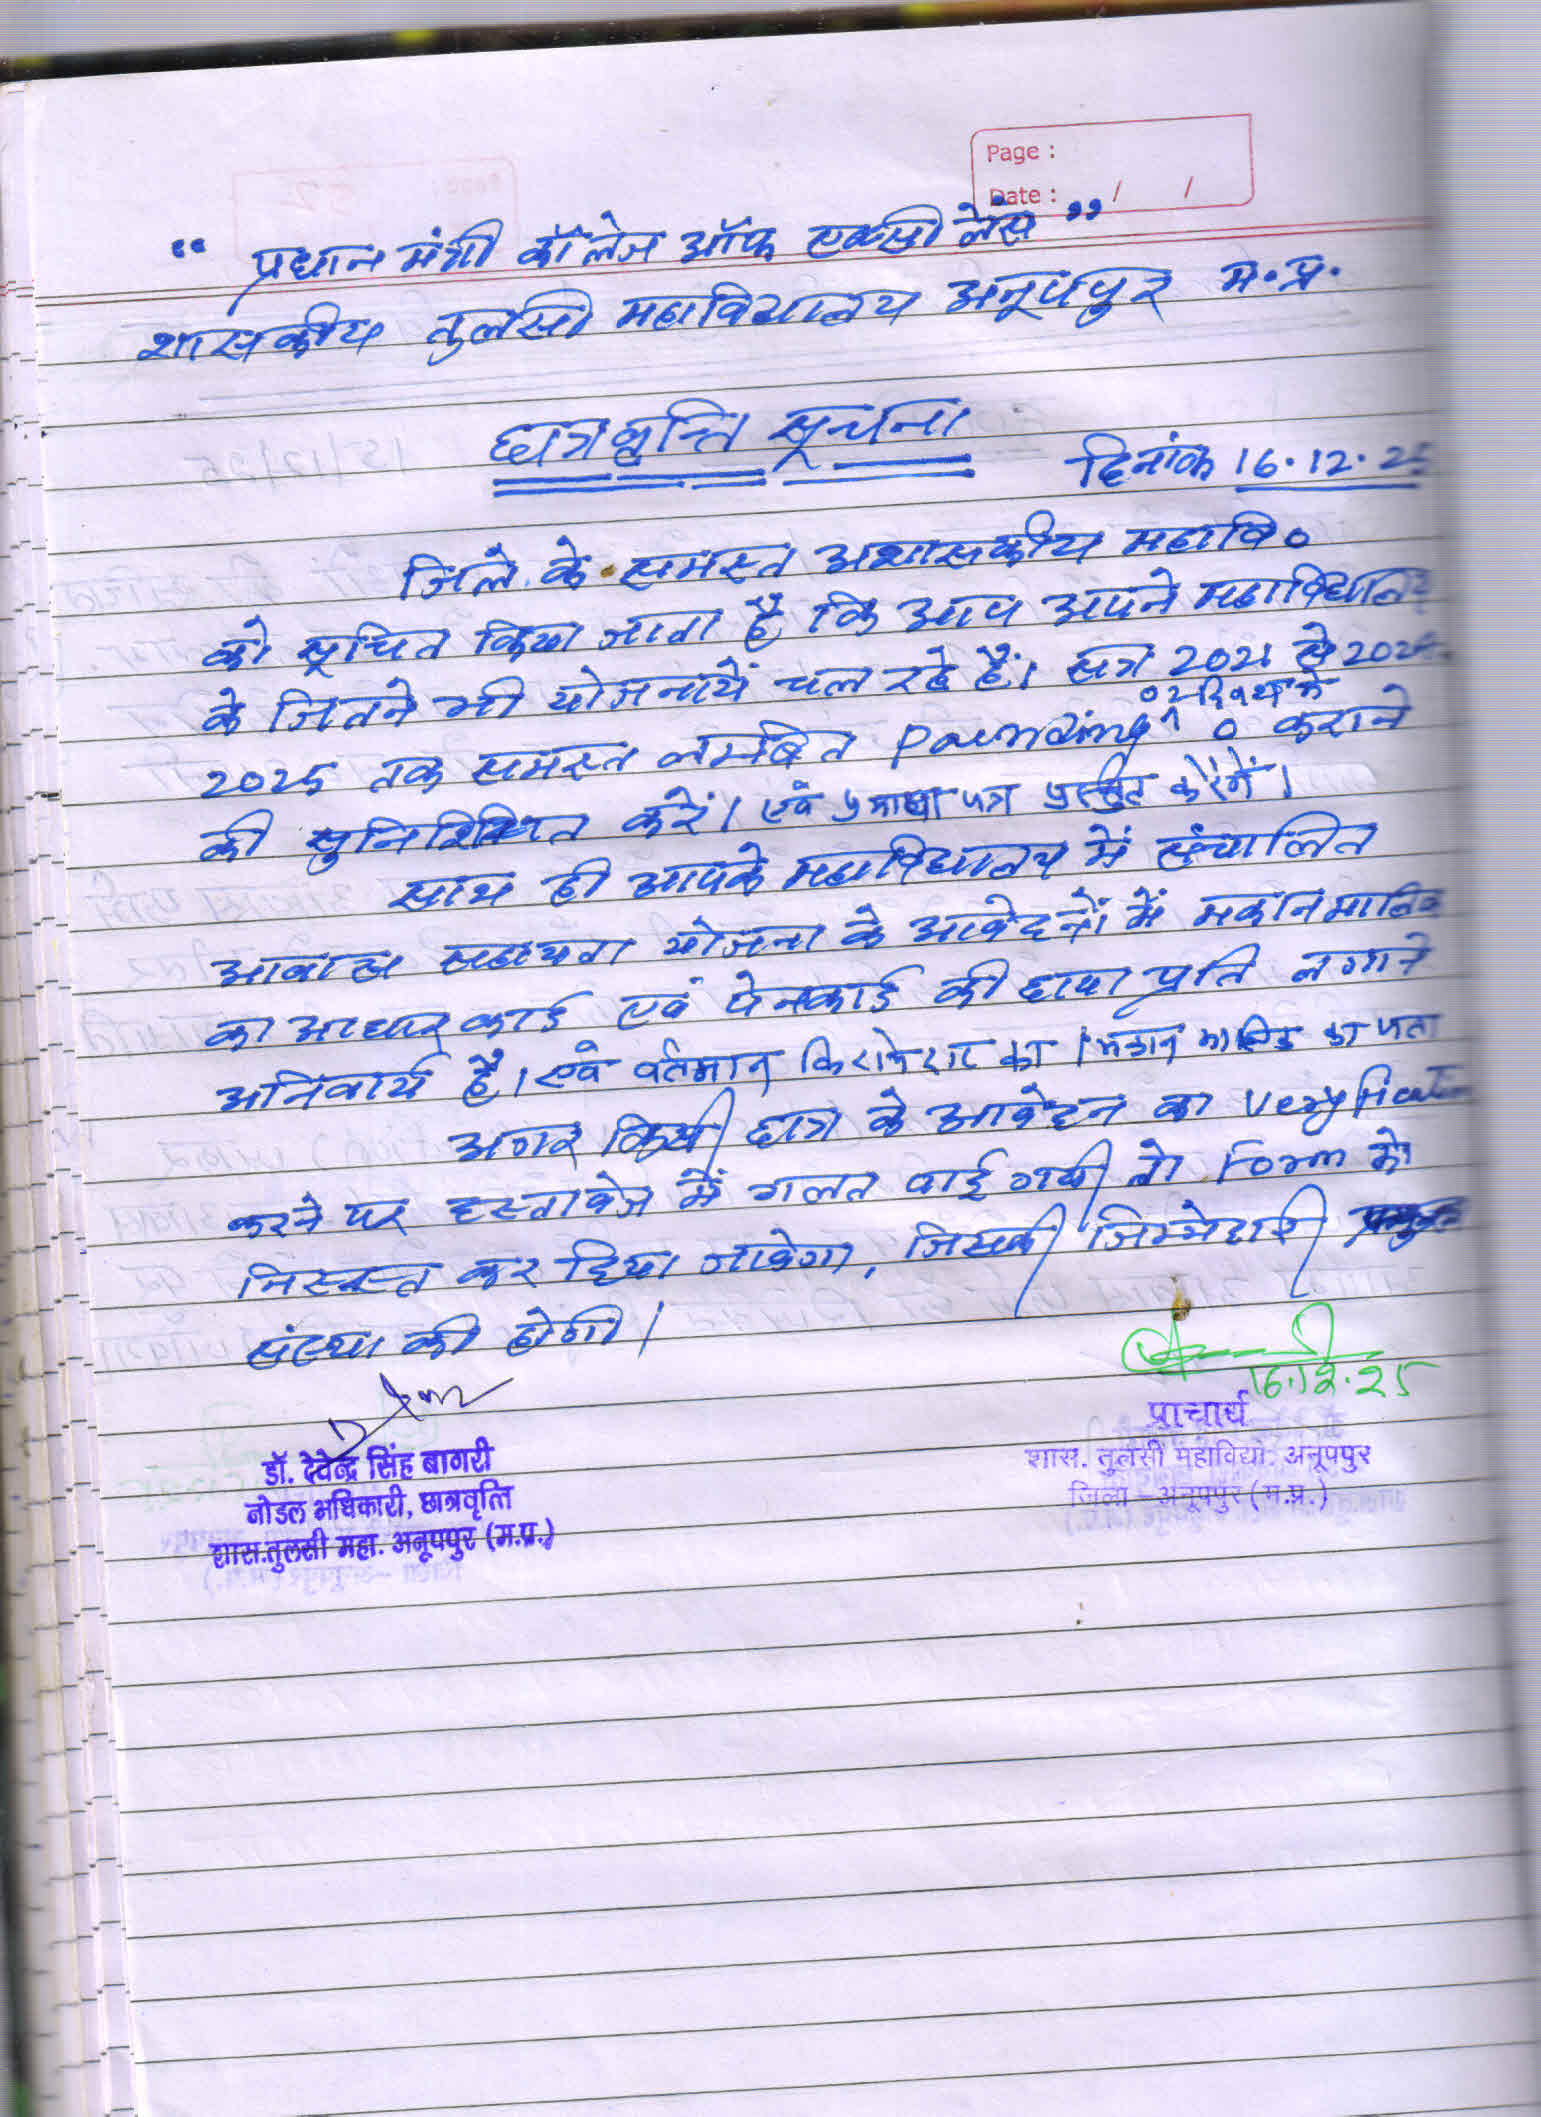 Page :
Date : / /
“ प्रधान मंत्री कॉलेज ऑफ एक्सीलेंस ”
शासकीय तुलसी महाविद्यालय अनूपपुर म.प्र.
छात्रवृत्ति सूचना
दिनांक 16.12.25
जिले के समस्त अशासकीय महावि०
को सूचित किया जाता है कि आप अपने महाविद्यालय
के जितने भी योजनायें चल रहे हैं। सत्र 2021 से 2024-
02 दिवस में
2025 तक समस्त लम्बित Paending 0 कराने
की सुनिश्चित करें। एवं प्रमाण पत्र प्रस्तुत करेंगें।
साथ ही आपके महाविद्यालय में संचालित
आवास सहायता योजना के आवेदनों में मकान मालिक
का आधार कार्ड एवं पेनकार्ड की छाया प्रति लगाने
अनिवार्य है। एवं वर्तमान किरायेदार का / मकान मालिक का पता
अगर किसी छात्र के आवेदन का Veryfication
करने पर दस्तावेज में गलत पाई गयी तो Form को
निरस्त कर दिया जावेगा, जिसकी जिम्मेदारी
संस्था की होगी।
16.12.25
प्राचार्य
शास. तुलसी महाविद्या. अनूपपुर
जिला - अनूपपुर (म.प्र.)
डॉ. देवेन्द्र सिंह बागरी
नोडल अधिकारी, छात्रवृत्ति
शास.तुलसी महा. अनूपपुर (म.प्र.)